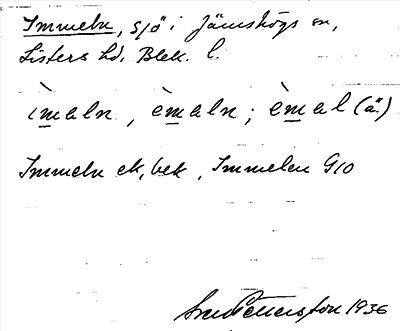 Immeln, sjö i Jämshögs sn,
Listers hd, Blek. l.
ìmaln, èmaln; èmal (ä.)
Immeln ek, bek, Immelen G10
1936